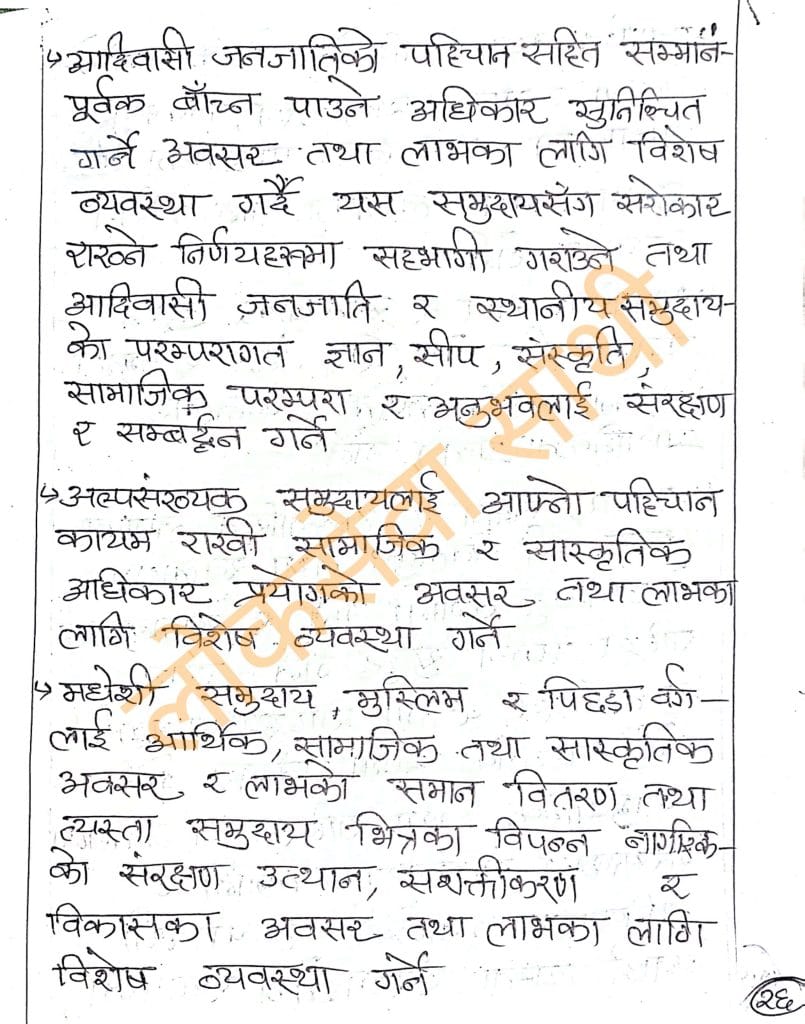 ↳ आदिवासी जनजातिको पहिचान सहित सम्मान-
पूर्वक बाँच्न पाउने अधिकार सुनिश्चित
गर्न अवसर तथा लाभका लागि विशेष
व्यवस्था गर्दै यस समुदायसँग सरोकार
राख्ने निर्णयहरुमा सहभागी गराउने तथा
आदिवासी जनजाति र स्थानीय समुदाय-
को परम्परागत ज्ञान, सीप, संस्कृति,
सामाजिक परम्परा र अनुभवलाई संरक्षण
र सम्बर्द्धन गर्ने
↳ अल्पसंख्यक समुदायलाई आफ्नो पहिचान
कायम राखी सामाजिक र सास्कृतिक
अधिकार प्रयोगको अवसर तथा लाभका
लागि विशेष व्यवस्था गर्ने
↳ मधेशी समुदाय, मुस्लिम र पिछडा वर्ग-
लाई आर्थिक, सामाजिक तथा सास्कृतिक
अवसर र लाभको समान वितरण तथा
त्यस्ता समुदाय भित्रका विपन्न नागरिक-
को संरक्षण उत्थान, सशक्तीकरण र
विकासका अवसर तथा लाभका लागि
विशेष व्यवस्था गर्ने
२६
लोकसेवा साथी